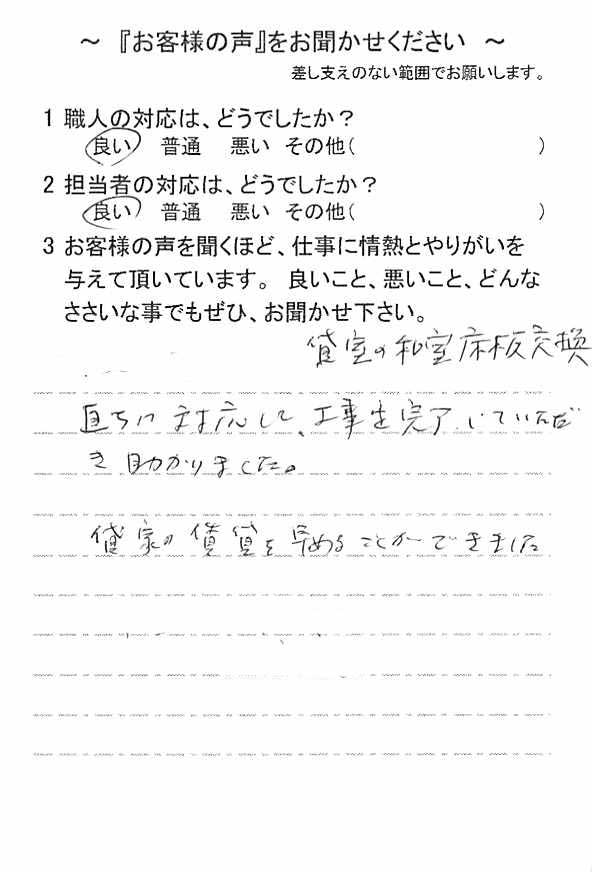 ～ 『お客様の声』をお聞かせください ～
差し支えのない範囲でお願いします。
1 職人の対応は、どうでしたか？
良い 普通 悪い その他( )
2 担当者の対応は、どうでしたか？
良い 普通 悪い その他( )
3 お客様の声を聞くほど、仕事に情熱とやりがいを
与えて頂いています。 良いこと、悪いこと、どんな
ささいな事でもぜひ、お聞かせ下さい。
貸室の和室床板交換
直ちに対応して、工事を完了していただ
き助かりました。
貸家の賃貸を早めることができました